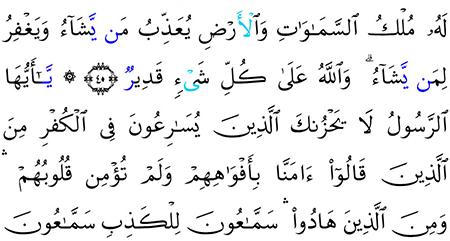 لَهُۥ مُلْكُ السَّمَـٰوَٰتِ وَالْأَرْضِ يُعَذِّبُ مَن يَّشَآءُ وَيَغْفِرُ
لِمَن يَّشَآءُ ۗ وَاللَّهُ عَلَىٰ كُلِّ شَىْءٍ قَدِيرٌ ﴿٤٥﴾ ۞ يَـٰٓأَيُّهَا
الرَّسُولُ لَا يَحْزُنكَ الَّذِينَ يُسَـٰرِعُونَ فِى الْكُفْرِ مِنَ
الَّذِينَ قَالُوٓا۟ ءَامَنَّا بِأَفْوَٰهِهِمْ وَلَمْ تُؤْمِن قُلُوبُهُمْ ۛ
وَمِنَ الَّذِينَ هَادُوا۟ ۛ سَمَّـٰعُونَ لِلْكَذِبِ سَمَّـٰعُونَ